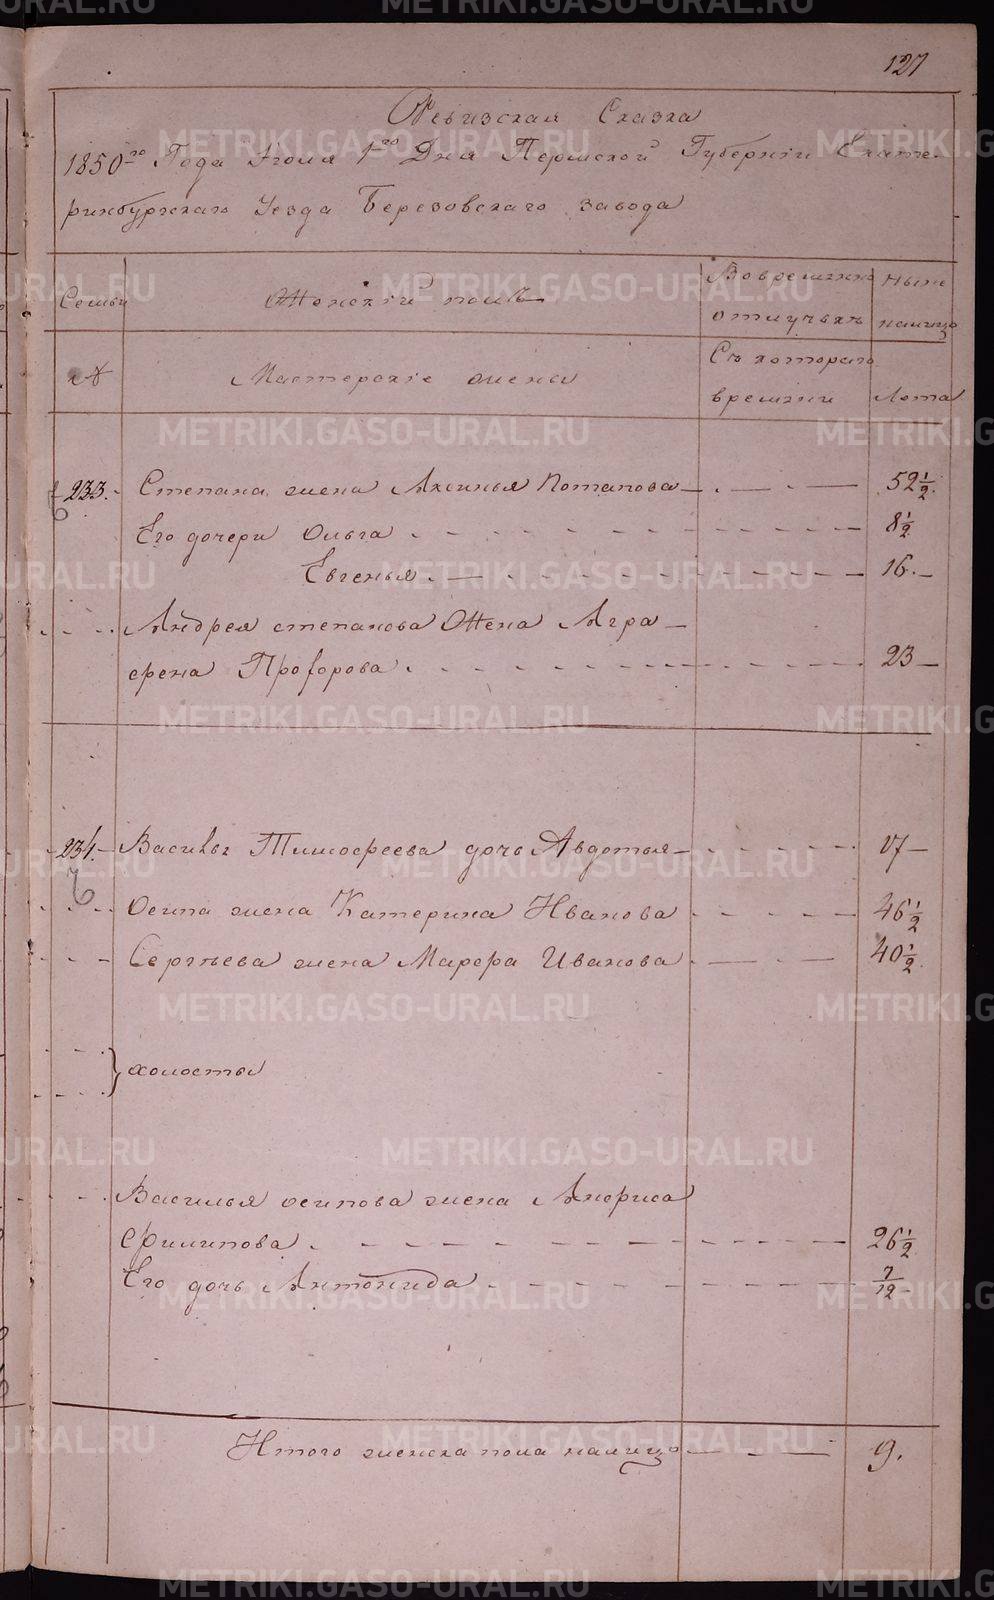 127
Ревизская Сказка
1850го Года Июля 1го Дня Пермской Губернiи Екате-
ринбургскаго Уезда Березовскаго завода
Семьи
Женскiй полъ
Во временных
отлучках
Ныне
налицо
№
Мастерскiе жены
Съ котораго
времени
Лета
233.
Степана жена Аксинья Потапова
52 1/2
Его дочери Ольга
8 1/2
Евгенья
16
Андрея степанова Жена Агра-
фена Прохорова
23
234.
Василья Тимофеева дочь Авдотья
17
6
Осипа жена Катерина Иванова
46 1/2
Сергѣева жена Марфа Иванова
40 1/2
холосты
Василья осипова жена Анфиса
Филипова
26 1/2
Его дочь Антонида
7/12
Итого женска пола налицо
9.
METRIKI.GASO-URAL.RU